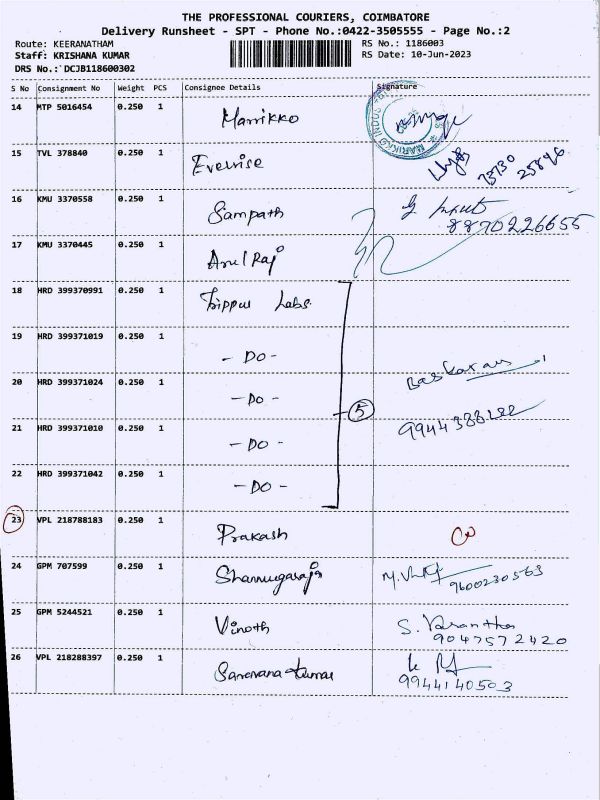 THE PROFESSIONAL COURIERS, COIMBATORE
Delivery Runsheet - SPT - Phone No.:0422-3505555 - Page No.:2
Route: KEERANATHAM
Staff: KRISHANA KUMAR
DRS No.: DCJB118600302
RS No.: 1186003
RS Date: 10-Jun-2023
S No Consignment No Weight PCS Consignee Details Signature
14 MTP 5016454 0.250 1 Marrikko
15 TVL 378840 0.250 1 Everrise
73730
25896
16 KMU 3370558 0.250 1 Sampath
8870226655
17 KMU 3370445 0.250 1 Arul Raj
18 HRD 399370991 0.250 1 Trippur Labs
19 HRD 399371019 0.250 1 - DO -
20 HRD 399371024 0.250 1 - DO - Baskaran
5
21 HRD 399371010 0.250 1 - DO -
22 HRD 399371042 0.250 1 - DO -
23 VPL 218788183 0.250 1 Prakash
24 GPM 707599 0.250 1 Shanmugaraja
9600230563
25 GPM 5244521 0.250 1 Vinoth S. Vasantha
9047572420
26 VPL 218288397 0.250 1 Saravana Kumar
9944140503